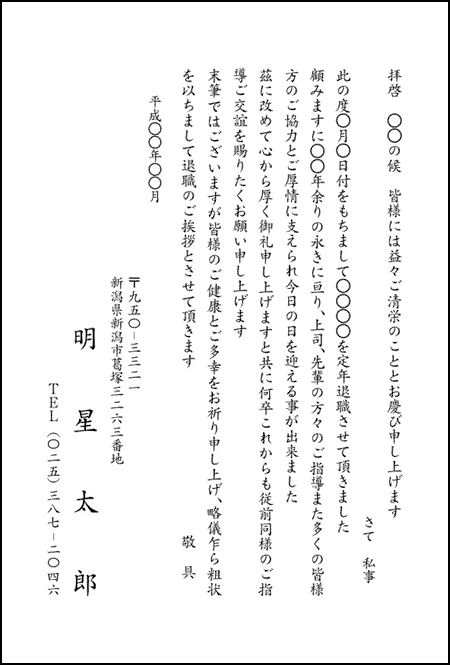 拝啓　〇〇の候　皆様には益々ご清栄のこととお慶び申し上げます
さて　私事
此の度〇月〇日付をもちまして〇〇〇〇を定年退職させて頂きました
顧みますに〇〇年余りの永きに亘り、上司、先輩の方々のご指導また多くの皆様
方のご協力とご厚情に支えられ今日の日を迎える事が出来ました
茲に改めて心から厚く御礼申し上げますと共に何卒これからも従前同様のご指
導ご交誼を賜りたくお願い申し上げます
末筆ではございますが皆様のご健康とご多幸をお祈り申し上げ、略儀乍ら粗状
を以ちまして退職のご挨拶とさせて頂きます
敬具
平成〇〇年〇〇月
〒九五〇－三三二一
新潟県新潟市葛塚三二六三番地
明星太郎
TEL（〇二五）三八七－二〇四六